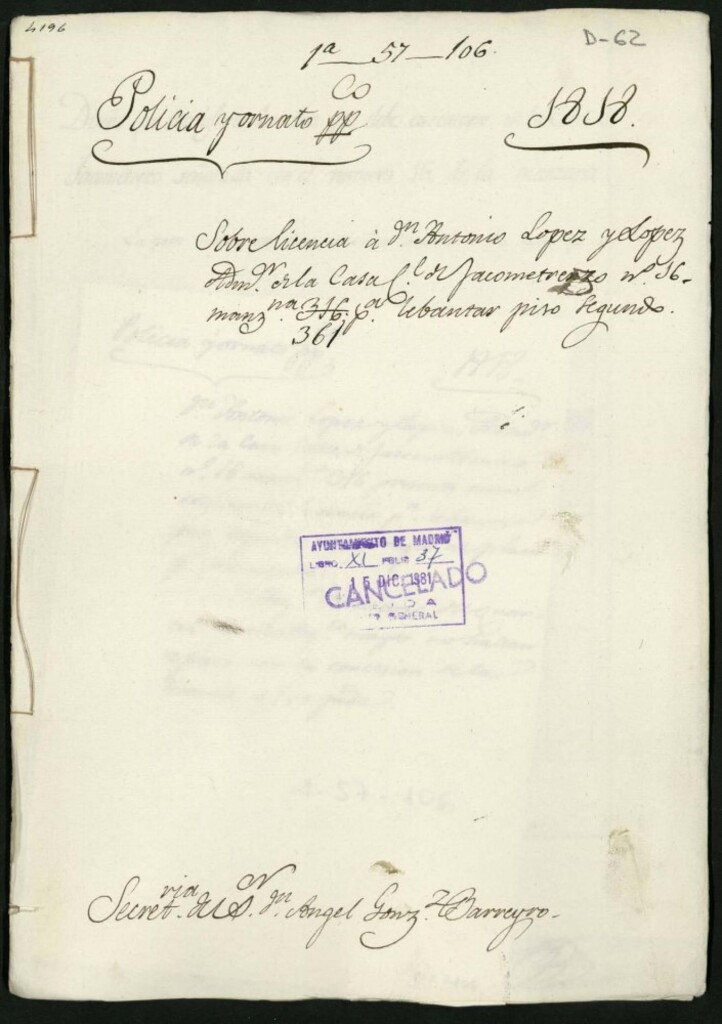 4196
D-62
1ª 57-106.
Policia y ornato ppco 1818.
Sobre licencia à Dn. Antonio Lopez y Lopez
Admor. de la Casa Cle. de Jacometrenzo nº. 16.
manzna. 316. pa. lebantar piso segundo.
361
AYUNTAMIENTO DE MADRID
LIBRO. XL FOLIO 37
15 DIC. 1981
CANCELADO
GENERAL
Secretria. del Sn. Dn. Angel Gonzz. Barreyro.